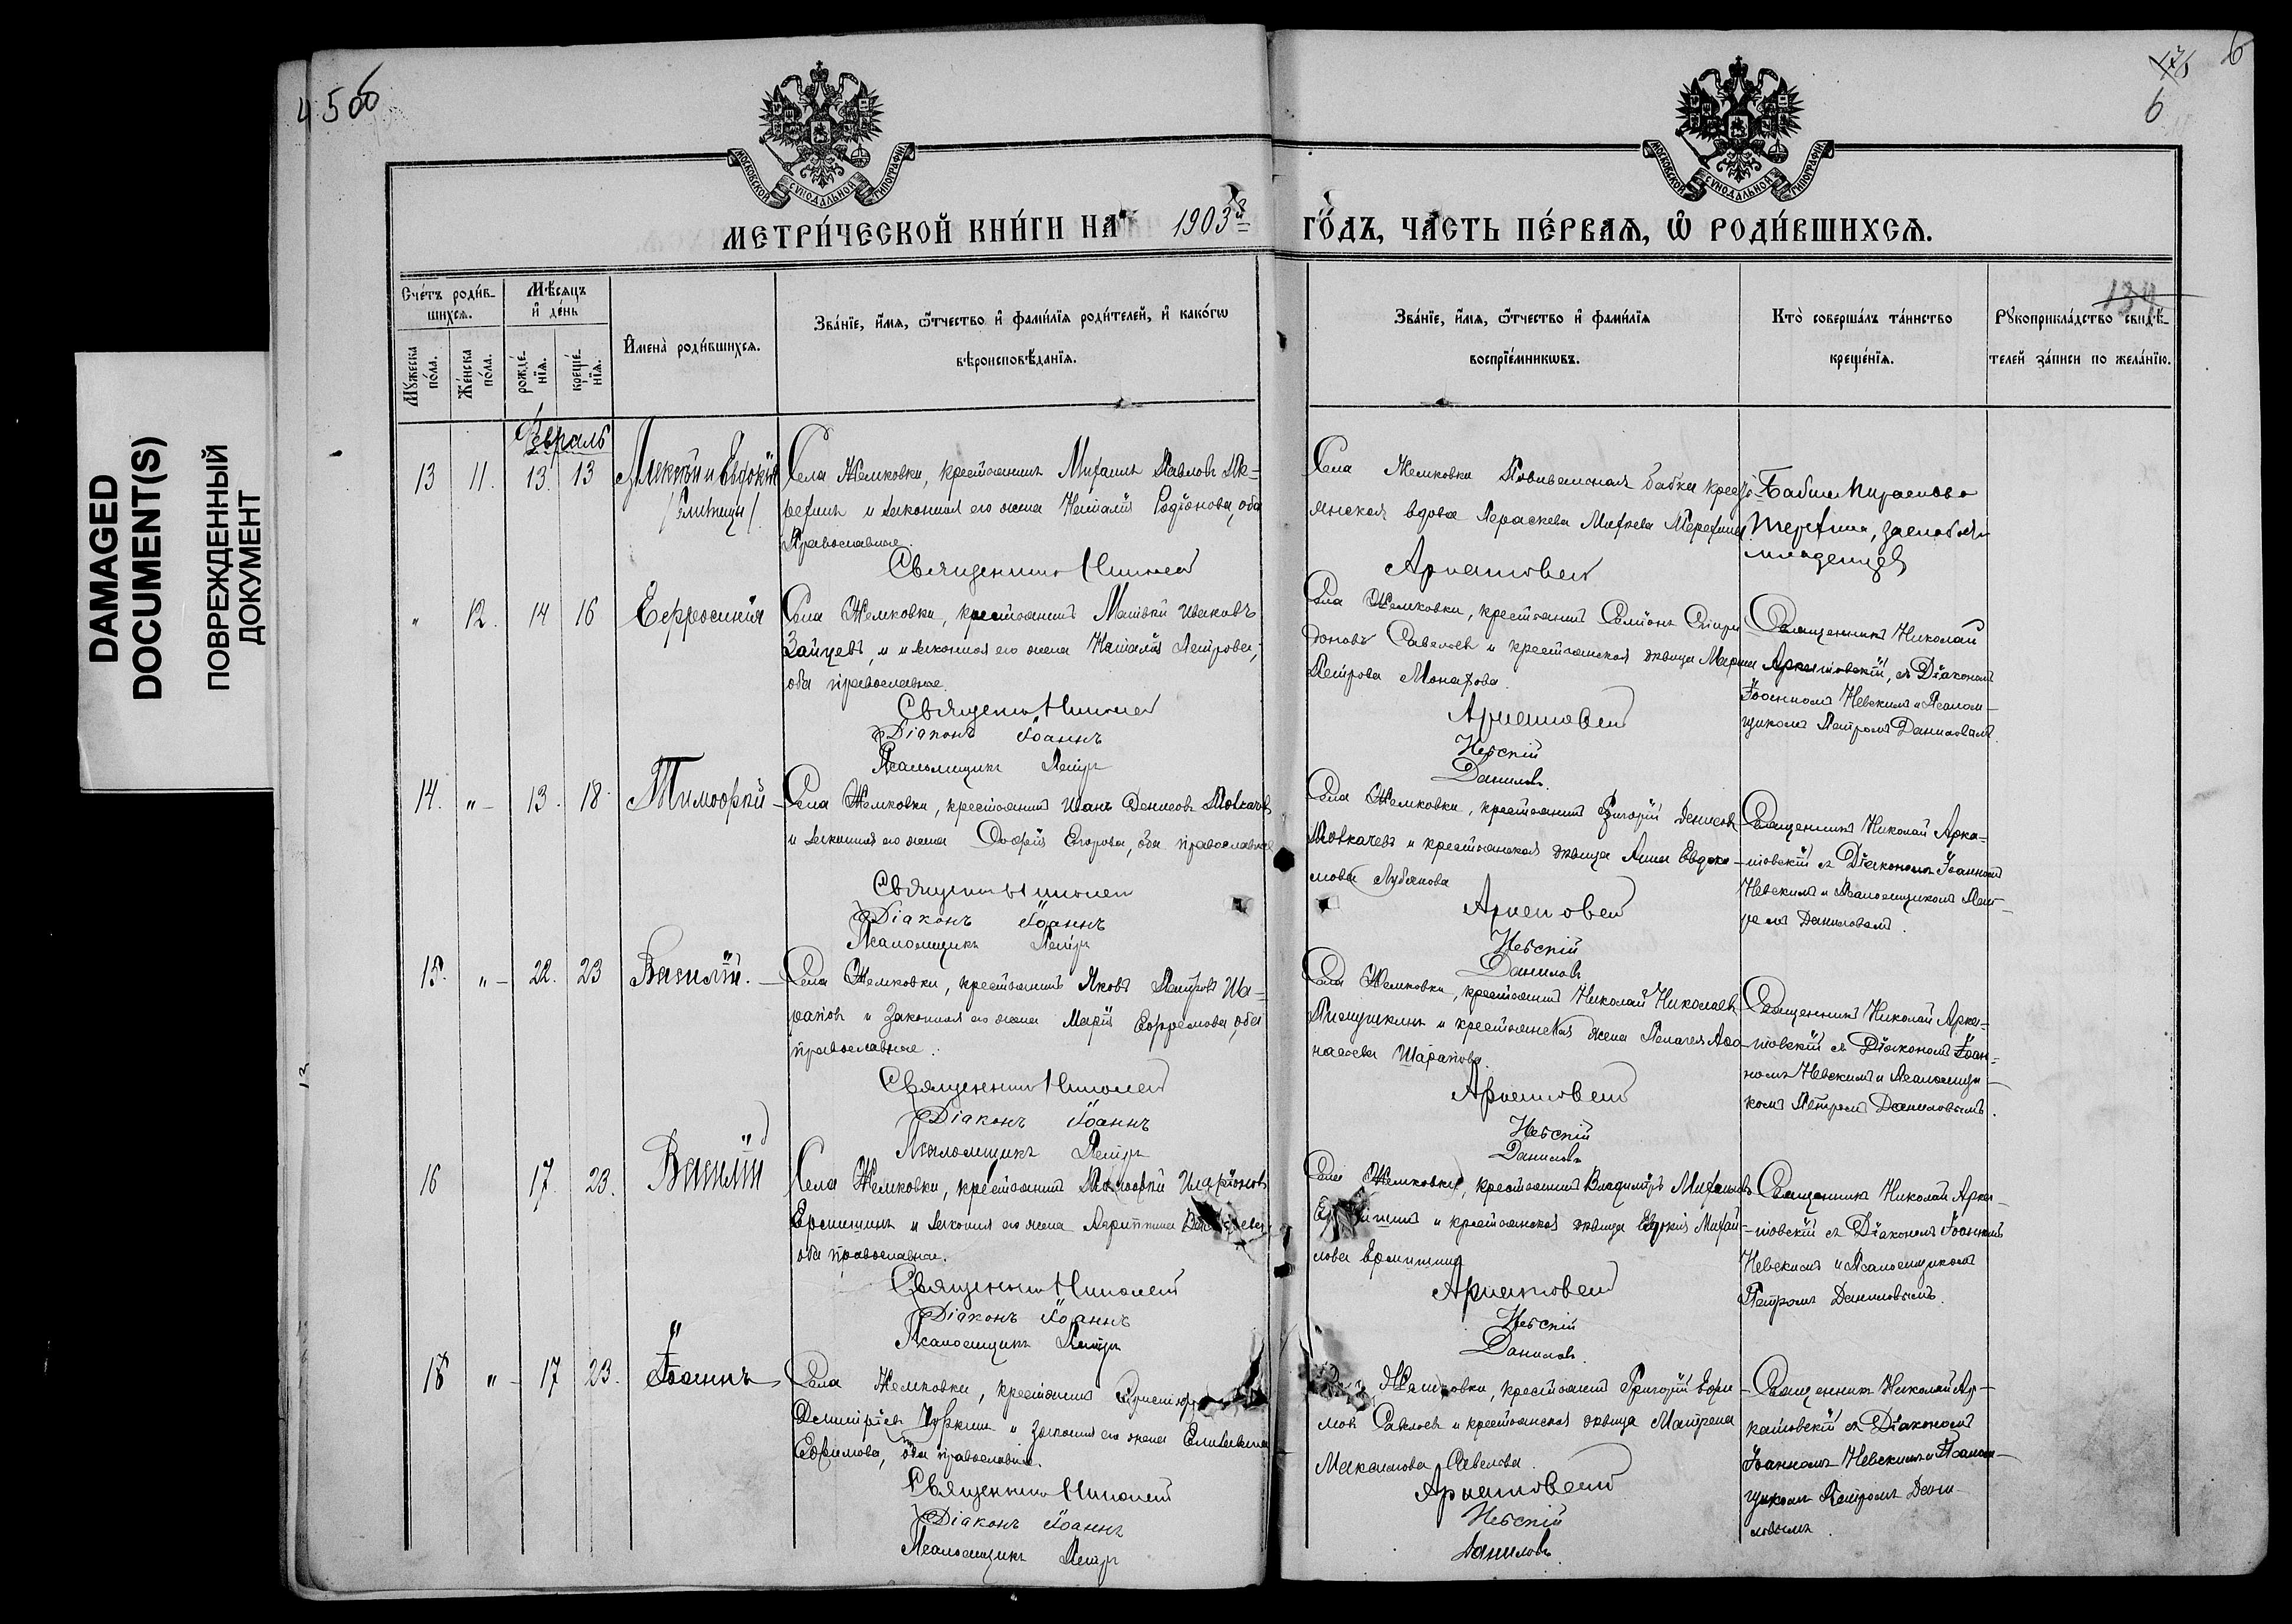 DAMAGED
DOCUMENT(S)
ПОВРЕЖДЕННЫЙ
ДОКУМЕНТ
6
6
6
МОСКОВСКОЙ СѴНОДАЛЬНОЙ ТИПОГРАФІИ
МОСКОВСКОЙ СѴНОДАЛЬНОЙ ТИПОГРАФІИ
МЕТРИ́ЧЕСКОЙ КНИ́ГИ НА 1903й ГО́ДЪ, ЧА́СТЬ ПЕ́РВАЯ, Ѡ РОДИ́ВШИХСЯ.
Сче́тъ роди́в-
шихся.
Му́жеска по́ла.
Же́нска по́ла.
Мѣ́сяцъ
и де́нь
рожде́-нїя.
креще́-нїя.
Имена̀ роди́вшихся.
Зва́нїе, и́мя, ѻ҆́тчество и фами́лїя роди́телей, и како́гѡ
вѣроисповѣ́данїя.
Зва́нїе, и́мя, ѻ҆́тчество и фами́лїя
воспрїе́мникѡвъ.
Кто̀ соверша́лъ та́инство
креще́нїя.
Рꙋкоприкла́дство свидѣ́-
телей за́писи по жела́нїю.
134
Февраль
13 11. 13. 13
Села Жемковки, крестьянинъ Михаилъ Павловъ Те-
рехинъ и законная его жена Наталія Родіонова, оба
Православные.
Священникъ Николай
Села Жемковки Повивальная бабка кресть-
янская вдова Параскева Терехина
Аркатовскій
Бабка
Терехина, за слабостью
младенцев
" 12. 14 16 Евфросинія
Села Жемковки, крестьянинъ Матвѣй Ивановъ
Зайцевъ, и законная его жена Наталія Петрова,
оба православные.
Священникъ Николай
Діаконъ Іоаннъ
Псаломщикъ Петръ
Села Жемковки, крестьянинъ Симіонъ Спири-
доновъ Савельевъ и крестьянская дѣвица Марина
Петрова Монахова.
Аркатовскій
Невскій
Даниловъ
Священникъ Николай
Аркатовскій, съ Діакономъ
Іоанномъ Невскимъ и Псалом-
щикомъ Петромъ Даниловымъ.
14. "- 13. 18. Тимоѳей
Села Жемковки, крестьянинъ Иванъ Денисовъ Толкачевъ
и законная его жена Софія Егорова, оба православные
Священникъ Николай
Діаконъ Іоаннъ
Псаломщикъ Петръ
Села Жемковки, крестьянинъ Григорій Денисовъ
Толкачевъ и крестьянская дѣвица Анна Евдоки-
мова
Аркатовскій
Невскій
Даниловъ
Священникъ Николай Арка-
товскій съ Діакономъ Іоанномъ
Невскимъ и Псаломщикомъ Пет-
ромъ Даниловымъ.
15. "- 22. 23 Василій.
Села Жемковки, крестьянинъ Яковъ Петровъ Ша-
раповъ и законная его жена Марія Ефремова, оба
православные.
Священникъ Николай
Діаконъ Іоаннъ
Псаломщикъ Петръ
Села Жемковки, крестьянинъ Николай Николаевъ
и крестьянская жена Пелагея Аѳа-
насьева Шарапова.
Аркатовскій
Невскій
Даниловъ
Священникъ Николай Арка-
товскій съ Діакономъ Іоан-
номъ Невскимъ и Псаломщи-
комъ Петромъ Даниловымъ.
16 17. 23. Василій
Села Жемковки, крестьянинъ Тимоѳей Иларіоновъ
Еремишинъ и законная его жена Агрипина
оба православные.
Священникъ Николай
Діаконъ Іоаннъ
Псаломщикъ Петръ
Села Жемковки, крестьянинъ Владиміръ Михаиловъ
и крестьянская дѣвица Евдокія Михаи-
лова Еремишина
Аркатовскій
Невскій
Даниловъ.
Священникъ Николай Арка-
товскій съ Діакономъ Іоанномъ
Невскимъ и Псаломщикомъ
Петромъ Даниловымъ.
18 "- 17 23. Іоаннъ
Села Жемковки, крестьянинъ
Димитріевъ и законная его жена Елизавета
Ефимова, оба православные.
Священникъ Николай
Діаконъ Іоаннъ
Псаломщикъ Петръ
Жемковки, крестьянинъ Григорій Ефи-
мовъ Савельевъ и крестьянская дѣвица Матрена
Максимова Савельева.
Аркатовскій
Невскій
Даниловъ
Священникъ Николай Ар-
катовскій съ Діакономъ
Іоанномъ Невскимъ и Псалом-
щикомъ Петромъ Дани-
ловымъ.